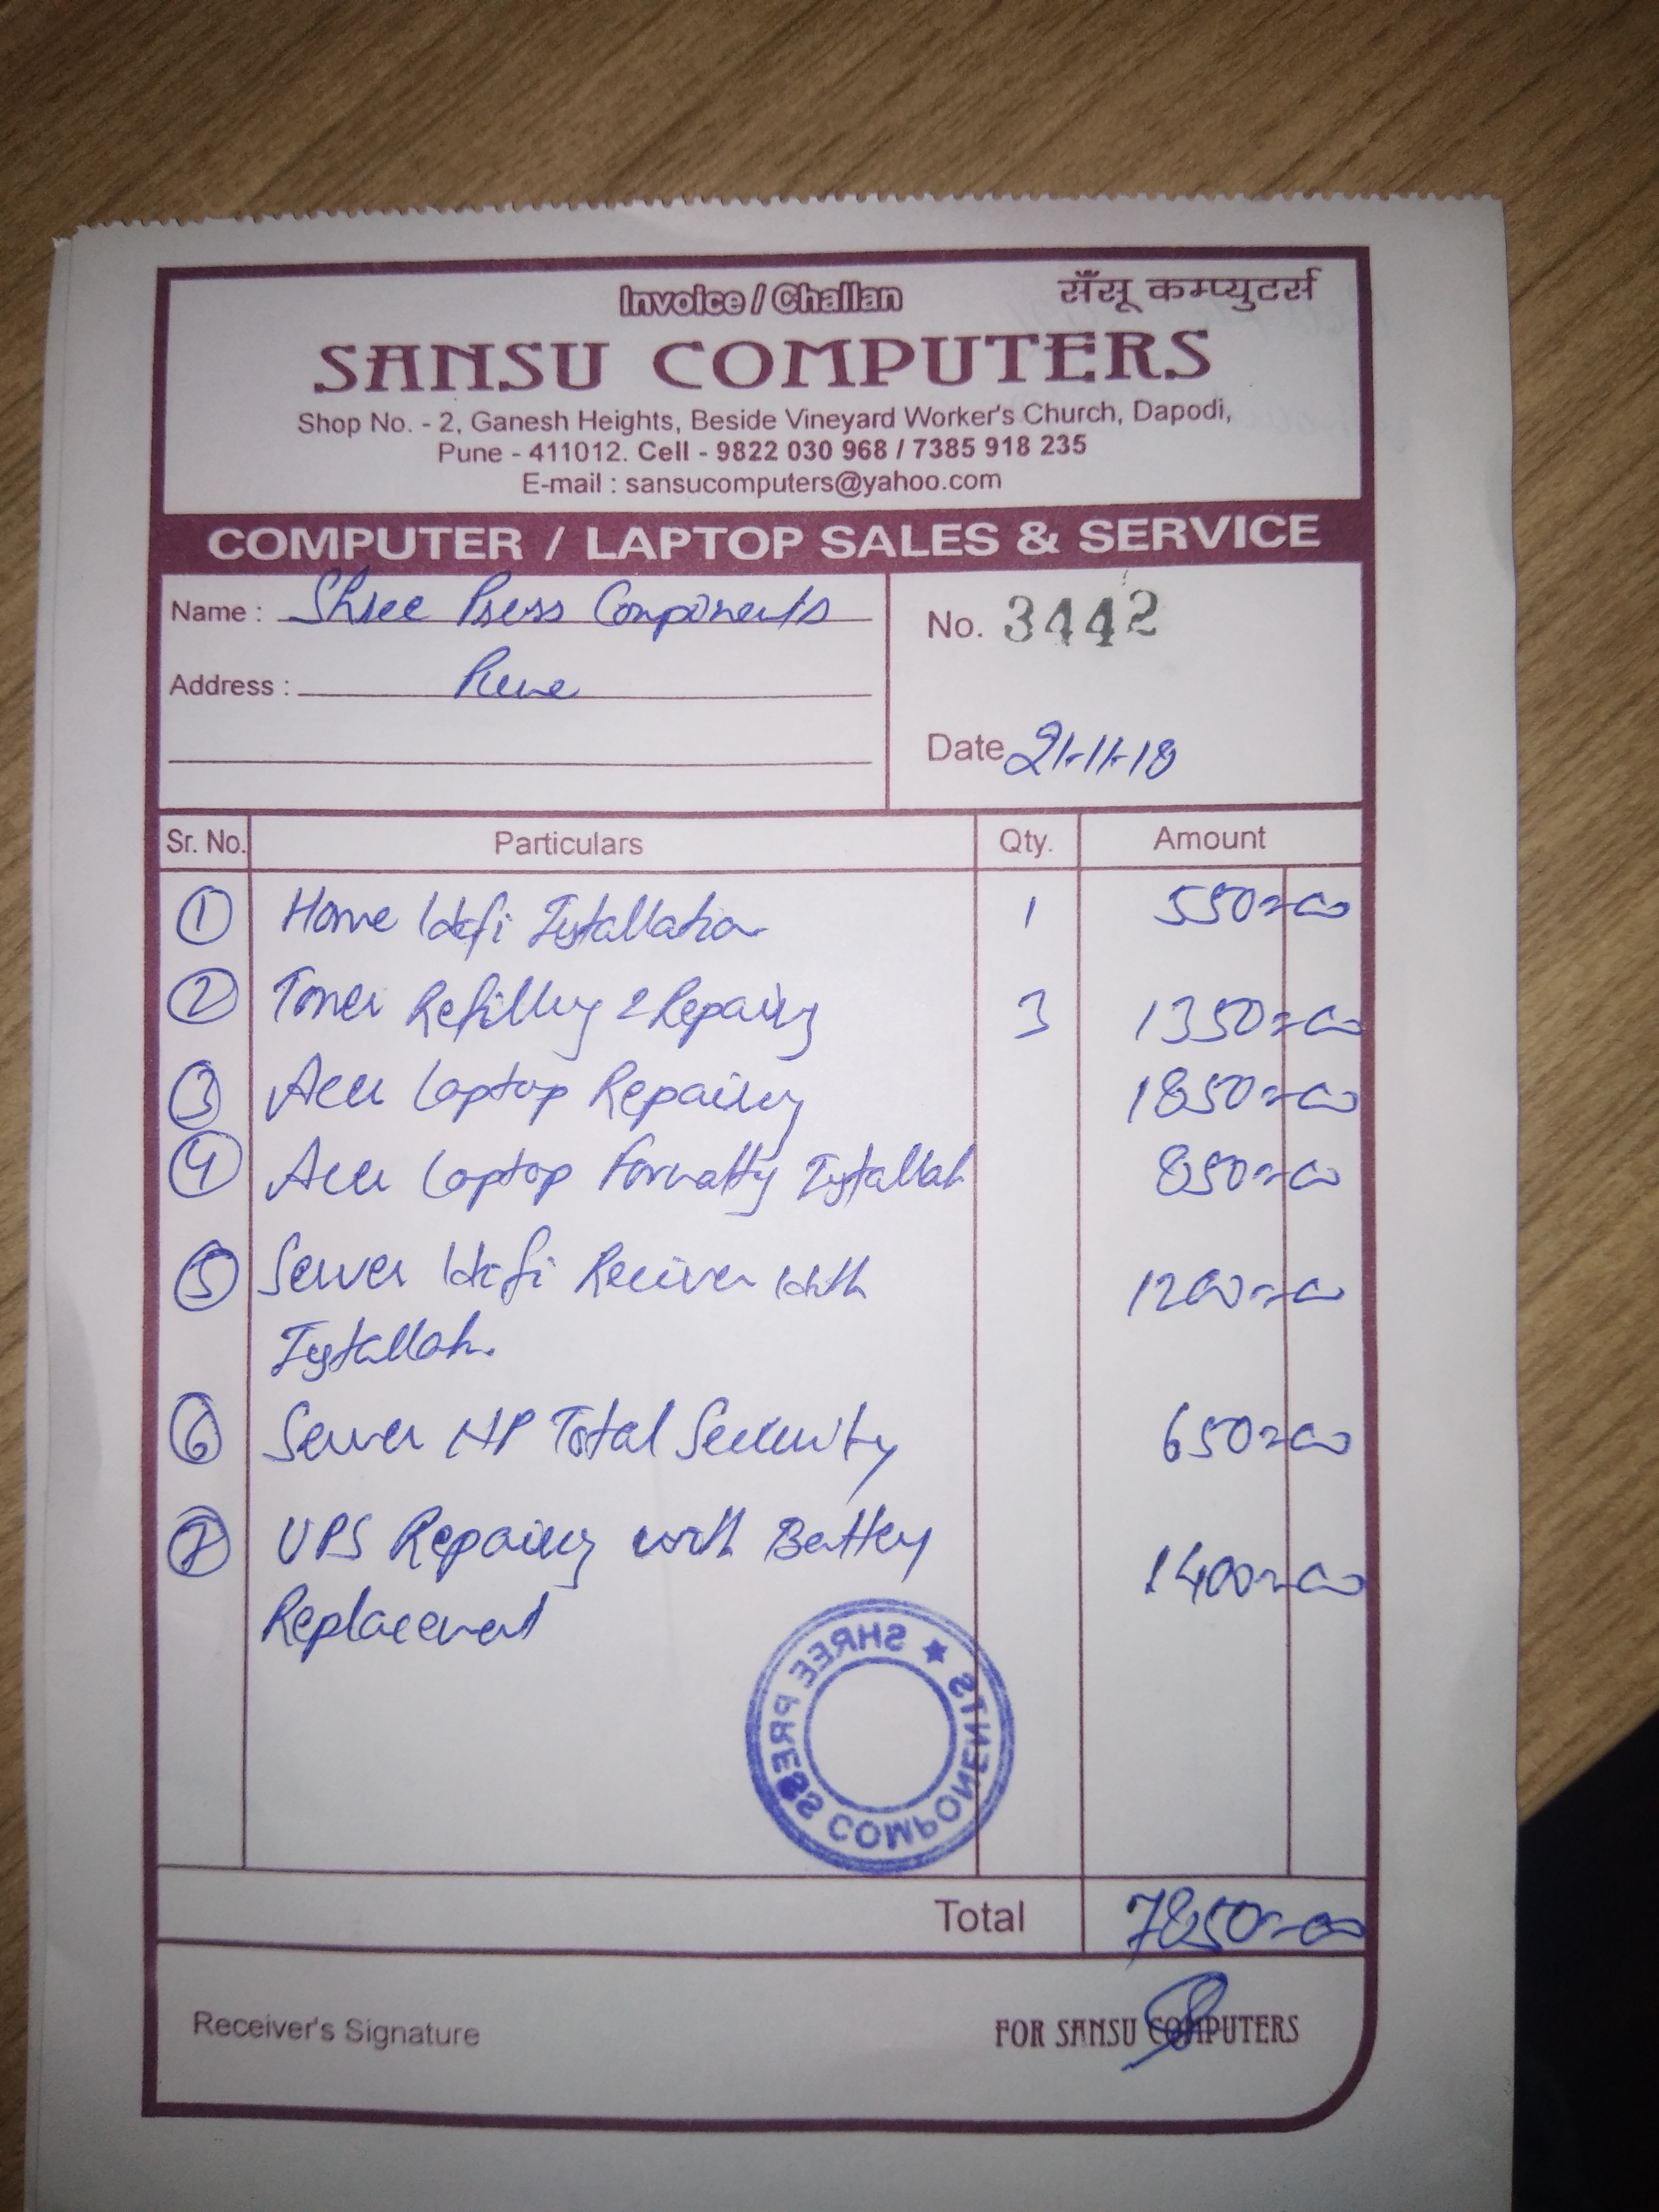 Invoice / Challan
सँसू कम्प्युटर्स
SANSU COMPUTERS
Shop No. - 2, Ganesh Heights, Beside Vineyard Worker's Church, Dapodi,
Pune - 411012. Cell - 9822 030 968 / 7385 918 235
E-mail : sansucomputers@yahoo.com
COMPUTER / LAPTOP SALES & SERVICE
Name : Shree Press Components
No. 3442
Address : Pune
Date 21-11-18
Sr. No. Particulars Qty. Amount
1 Home Wifi Installation 1 550=00
2 Toner Refilling & Repairing 3 1350=00
3 Acer Laptop Repairing 1850=00
4 Acer Laptop Formatting Installah 850=00
5 Server Wifi Reciver with 1200=00
Installah.
6 Server NP Total Security 650=00
7 UPS Repairing with Battery 1400=00
Replacement
SHREE PRESS COMPONENTS
Total 7850=00
Receiver's Signature
FOR SANSU COMPUTERS